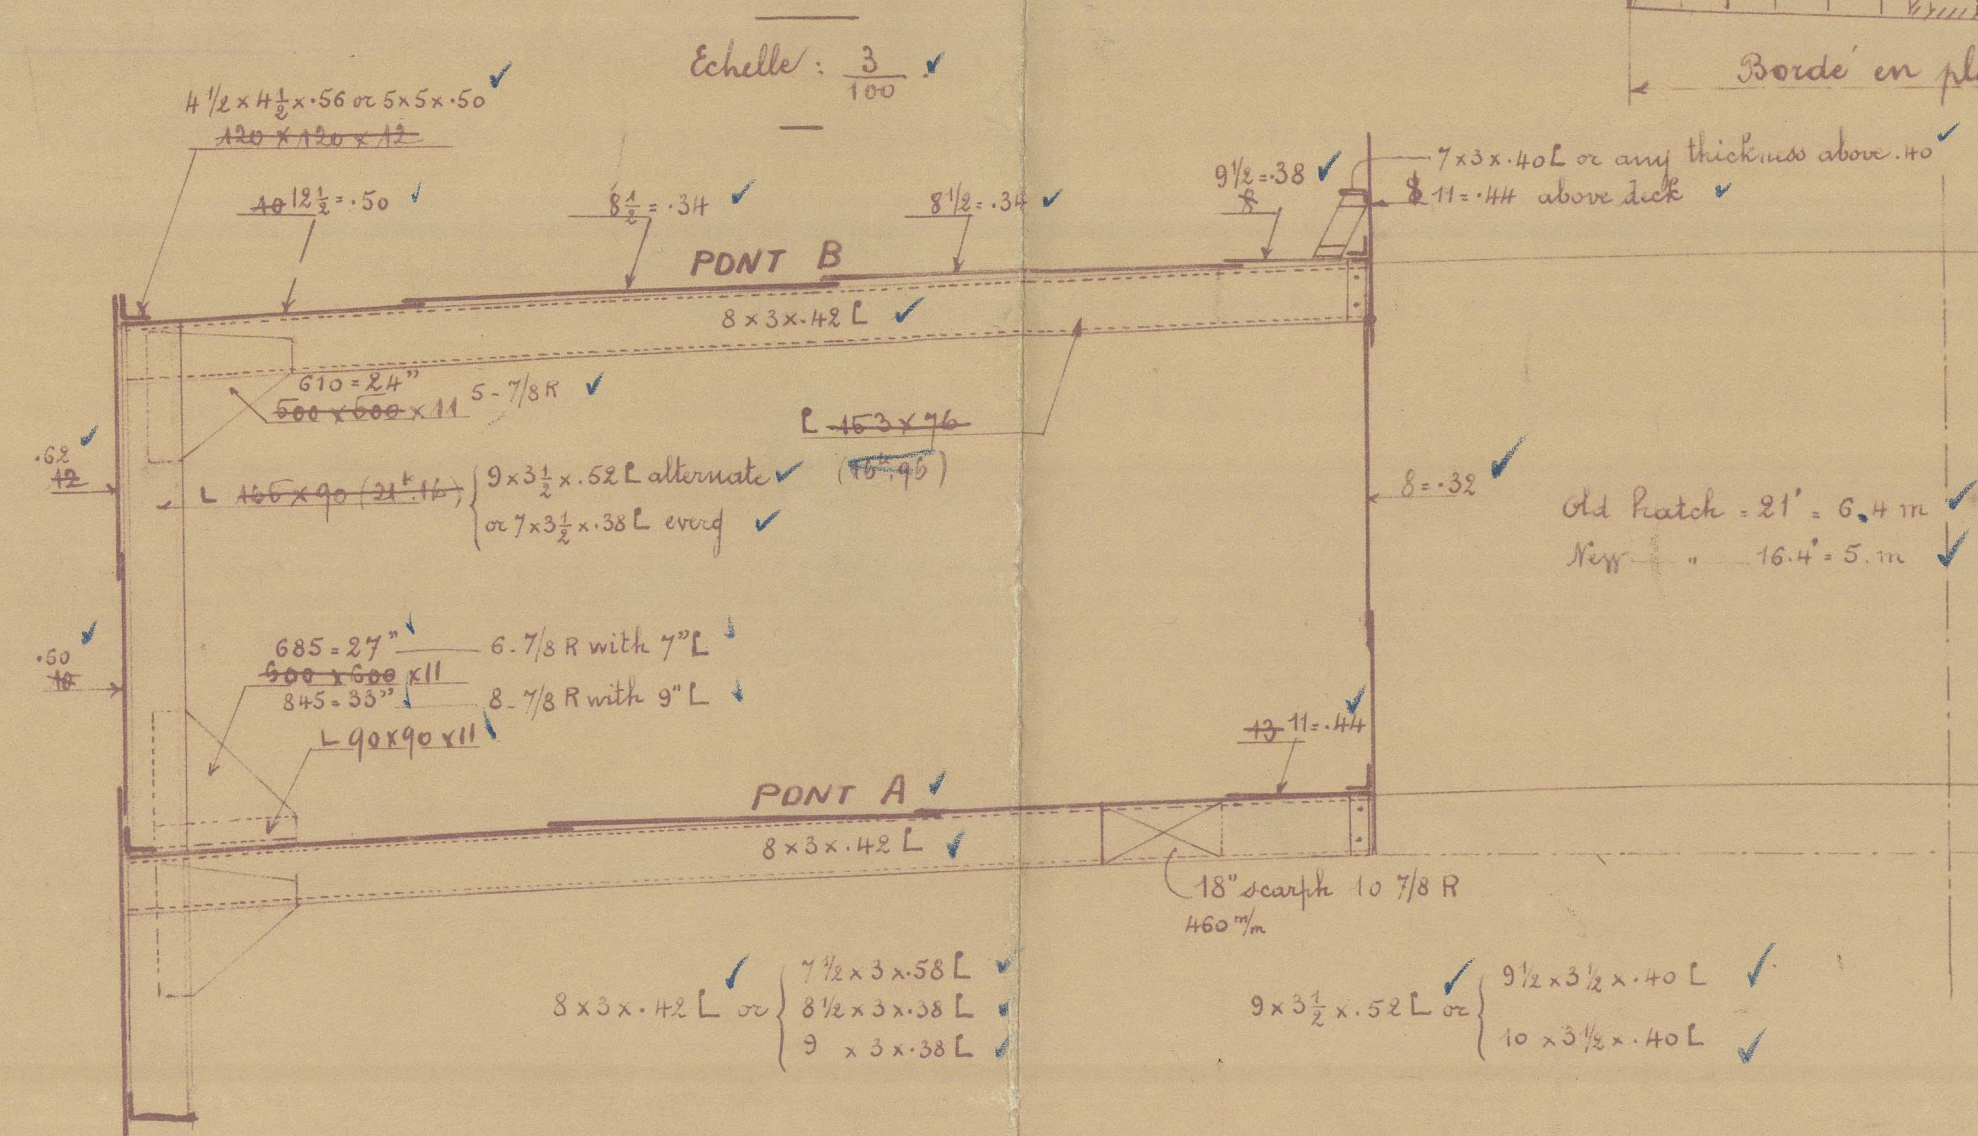 Echelle : 3/100.
Bordé en
4 1/2 x 4 1/2 x .56 or 5 x 5 x .50
120 x 120 x 12
10 12 1/2 = .50
8 1/2 = .34
8 1/2 = .34
9 1/2 = .38
8
7 x 3 x .40 [ or any thickness above .40
8 11 = .44 above deck
PONT B
8 x 3 x .42 [
610 = 24"
500 x 500 x 11 5 - 7/8 R
[ 153 x 76
.62
12
L 165 x 90 { 9 x 3 1/2 x .52 [ alternate
or 7 x 3 1/2 x .38 [ every
8 = .32
Old hatch = 21' = 6.4 m
New " 16.4' = 5. m
.60
10
685 = 27" 6 - 7/8 R with 7" [
600 x 600 x 11
845 = 33" 8 - 7/8 R with 9" [
L 90 x 90 x 11
13 11 = .44
PONT A
8 x 3 x .42 [
18" scarph 10 7/8 R
460 m/m
8 x 3 x .42 [ or { 7 1/2 x 3 x .58 [
8 1/2 x 3 x .38 [
9 x 3 x .38 [
9 x 3 1/2 x .52 [ or { 9 1/2 x 3 1/2 x .40 [
10 x 3 1/2 x .40 [